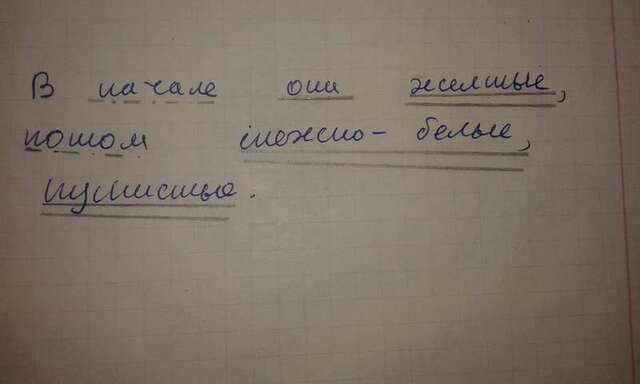 В начале они желтые,
потом снежно-белые,
пушистые.